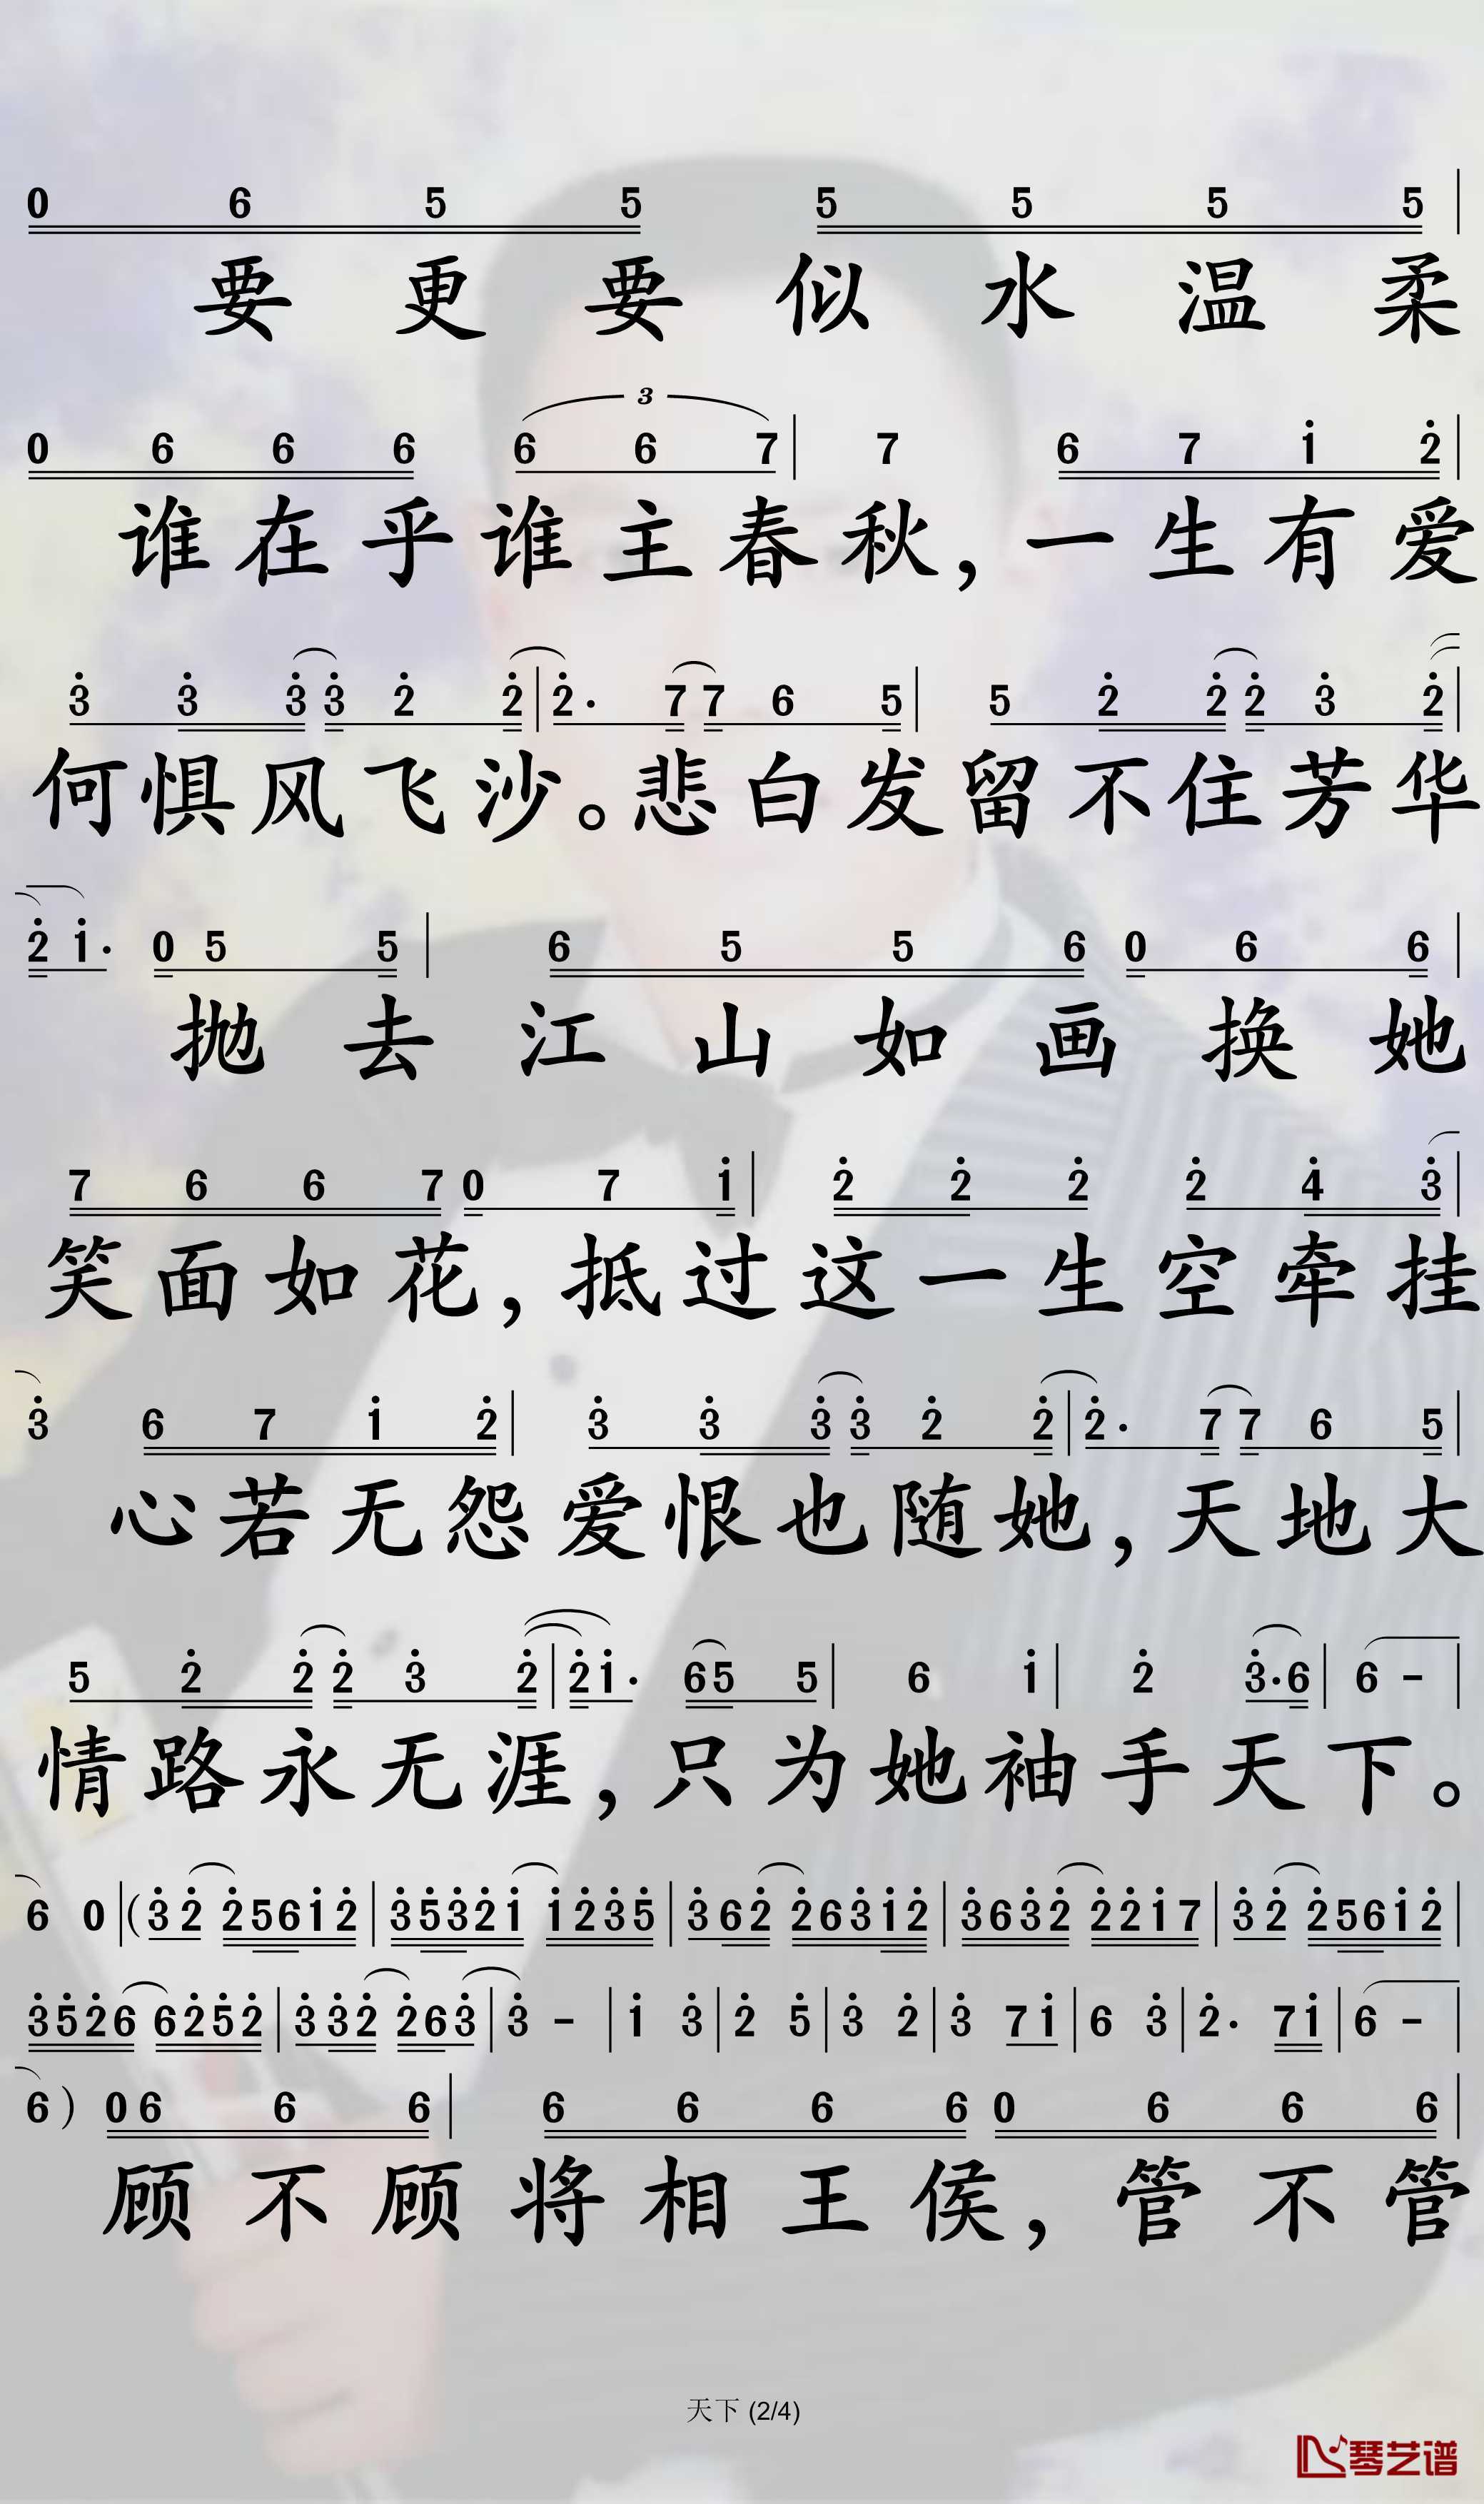 0 6 5 5 5 5 5 5
要更要似水温柔
0 6 6 6 6 6 7 7 6 7 1 2
3
谁在乎谁主春秋，一生有爱
3 3 3 3 2 2 2· 7 7 6 5 5 2 2 2 3 2
何惧风飞沙。悲白发留不住芳华
2 1· 0 5 5 6 5 5 6 0 6 6
抛去江山如画换她
7 6 6 7 0 7 1 2 2 2 2 4 3
笑面如花，抵过这一生空牵挂
3 6 7 1 2 3 3 3 3 2 2 2· 7 7 6 5
心若无怨爱恨也随她，天地大
5 2 2 2 3 2 2 1· 6 5 5 6 1 2 3· 6 6 -
情路永无涯，只为她袖手天下。
6 0 (3 2 2 5 6 1 2 3 5 3 2 1 1 2 3 5 3 6 2 2 6 3 1 2 3 6 3 2 2 2 1 7 3 2 2 5 6 1 2
3 5 2 6 6 2 5 2 3 3 2 2 6 3 3 - 1 3 2 5 3 2 3 7 1 6 3 2· 7 1 6 -
6 ) 0 6 6 6 6 6 6 6 0 6 6 6
顾不顾将相王侯，管不管
天下 (2/4)
琴艺谱